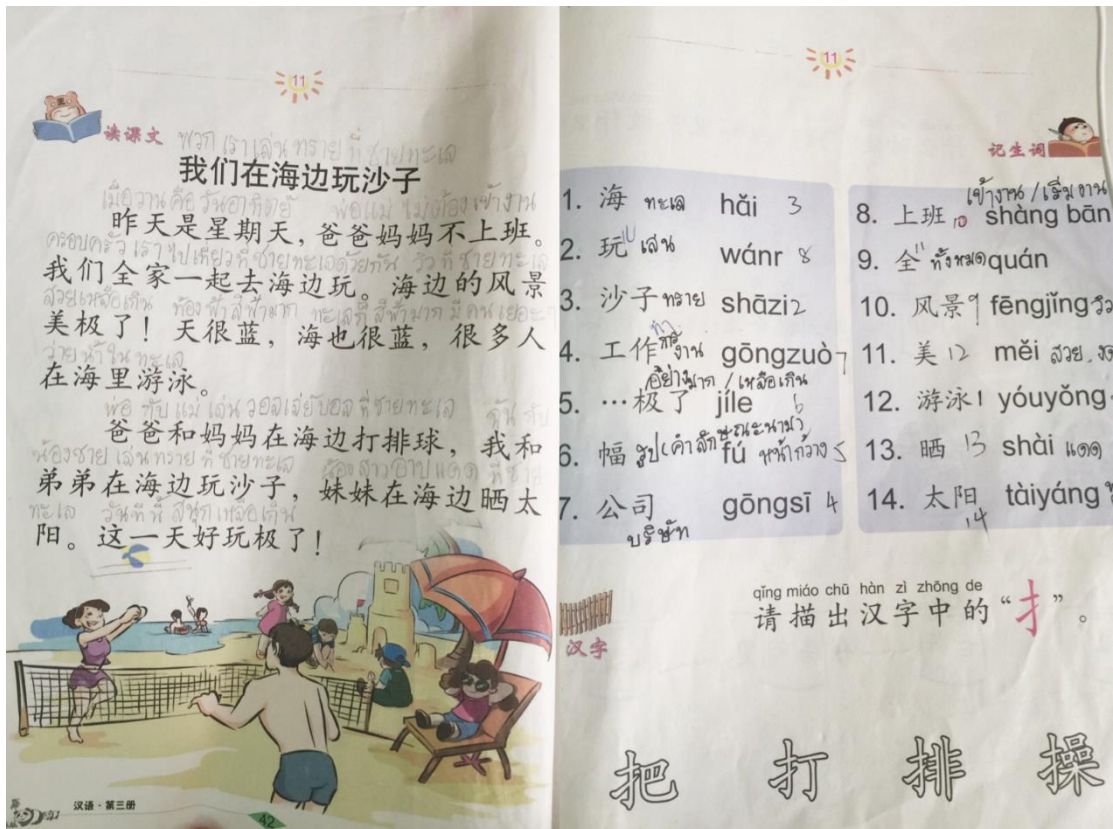 11
读课文
พวก เรา เล่น ทราย ที่ ชายทะเล
我们在海边玩沙子
เมื่อวาน คือ วันอาทิตย์ พ่อแม่ ไม่ต้อง เข้างาน
昨天是星期天，爸爸妈妈不上班。
ครอบครัว เรา ไปเที่ยวที่ ชายทะเลด้วยกัน วิว ที่ ชายทะเล
我们全家一起去海边玩。海边的风景
สวยเหลือเกิน ท้องฟ้า สีฟ้ามาก ทะเลก็ สีฟ้ามาก มี คน เยอะๆ
美极了！天很蓝，海也很蓝，很多人
ว่าย น้ำ ใน ทะเล
在海里游泳。
พ่อ กับ แม่ เล่น วอลเล่ย์บอล ที่ ชายทะเล ฉัน กับ
爸爸和妈妈在海边打排球，我和
น้องชาย เล่น ทราย ที่ ชายทะเล น้อง สาว อาบ แดด ที่ ชาย
弟弟在海边玩沙子，妹妹在海边晒太
ทะเล วันนี้ สนุก เหลือเกิน
阳。这一天好玩极了！
汉语·第三册
42
11
记生词
1. 海 ทะเล hǎi 3
2. 玩 เล่น wánr 8
3. 沙子 ทราย shāzi 2
4. 工作 ทำ งาน gōngzuò 7
อย่างมาก / เหลือเกิน
5. …极了 jíle 6
6. 幅 รูป (คำลักษณะนาม) fú หน้ากว้าง 5
7. 公司 gōngsī 4
บริษัท
เข้างาน / เริ่มงาน
8. 上班 10 shàng bān
9. 全 11 ทั้งหมด quán
10. 风景 9 fēngjǐng วิว
11. 美 12 měi สวย
12. 游泳 1 yóuyǒng
13. 晒 13 shài แดด
14. 太阳 tàiyáng
14
qǐng miáo chū hàn zì zhōng de
请描出汉字中的“扌”。
汉字
把 打 排 操